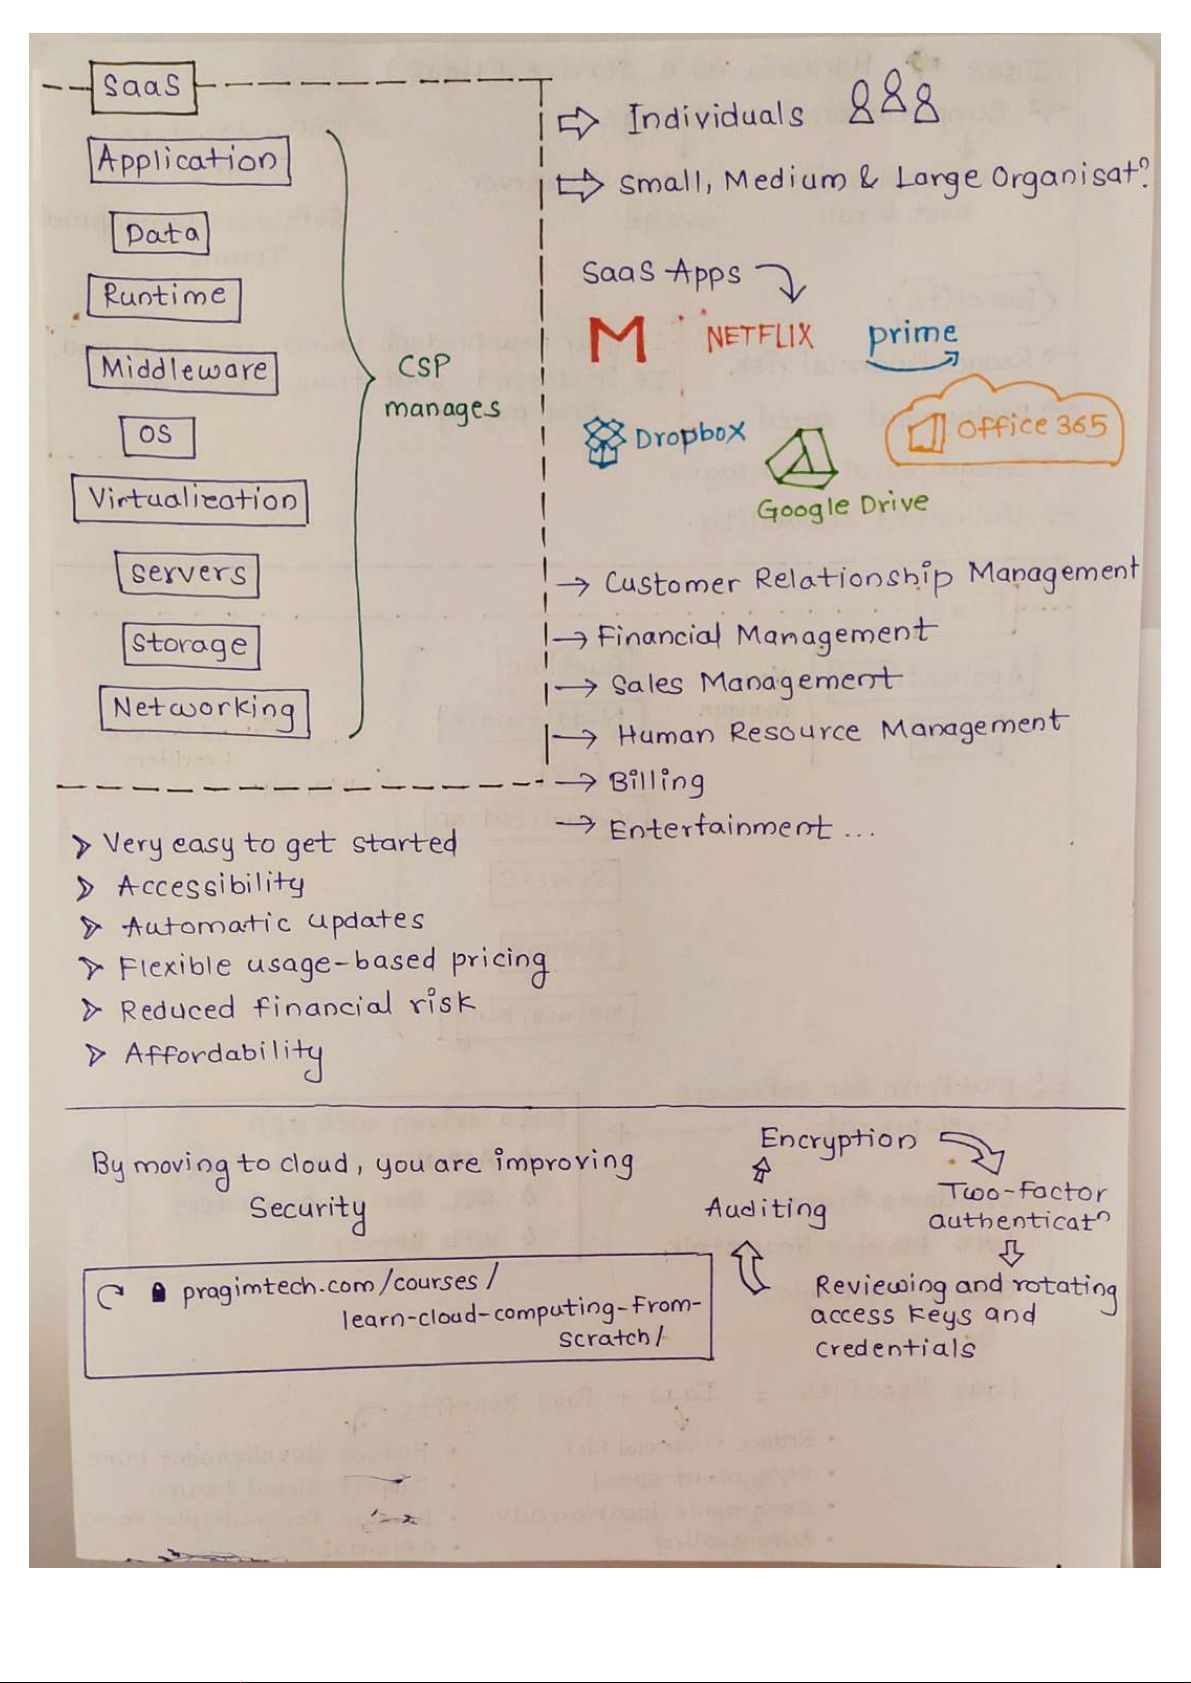 SaaS
Application
Data
Runtime
Middleware
OS
Virtualization
Servers
Storage
Networking
CSP
manages
Individuals
Small, Medium & Large Organisatⁿ
SaaS Apps
M
NETFLIX
prime
Dropbox
Office 365
Google Drive
→ Customer Relationship Management
→ Financial Management
→ Sales Management
→ Human Resource Management
→ Billing
→ Entertainment ...
Very easy to get started
Accessibility
Automatic updates
Flexible usage-based pricing
Reduced financial risk
Affordability
By moving to cloud, you are improving
Security
Encryption
Two-factor
authenticatⁿ
Reviewing and rotating
access keys and
credentials
Auditing
pragimtech.com/courses/
learn-cloud-computing-from-
scratch/